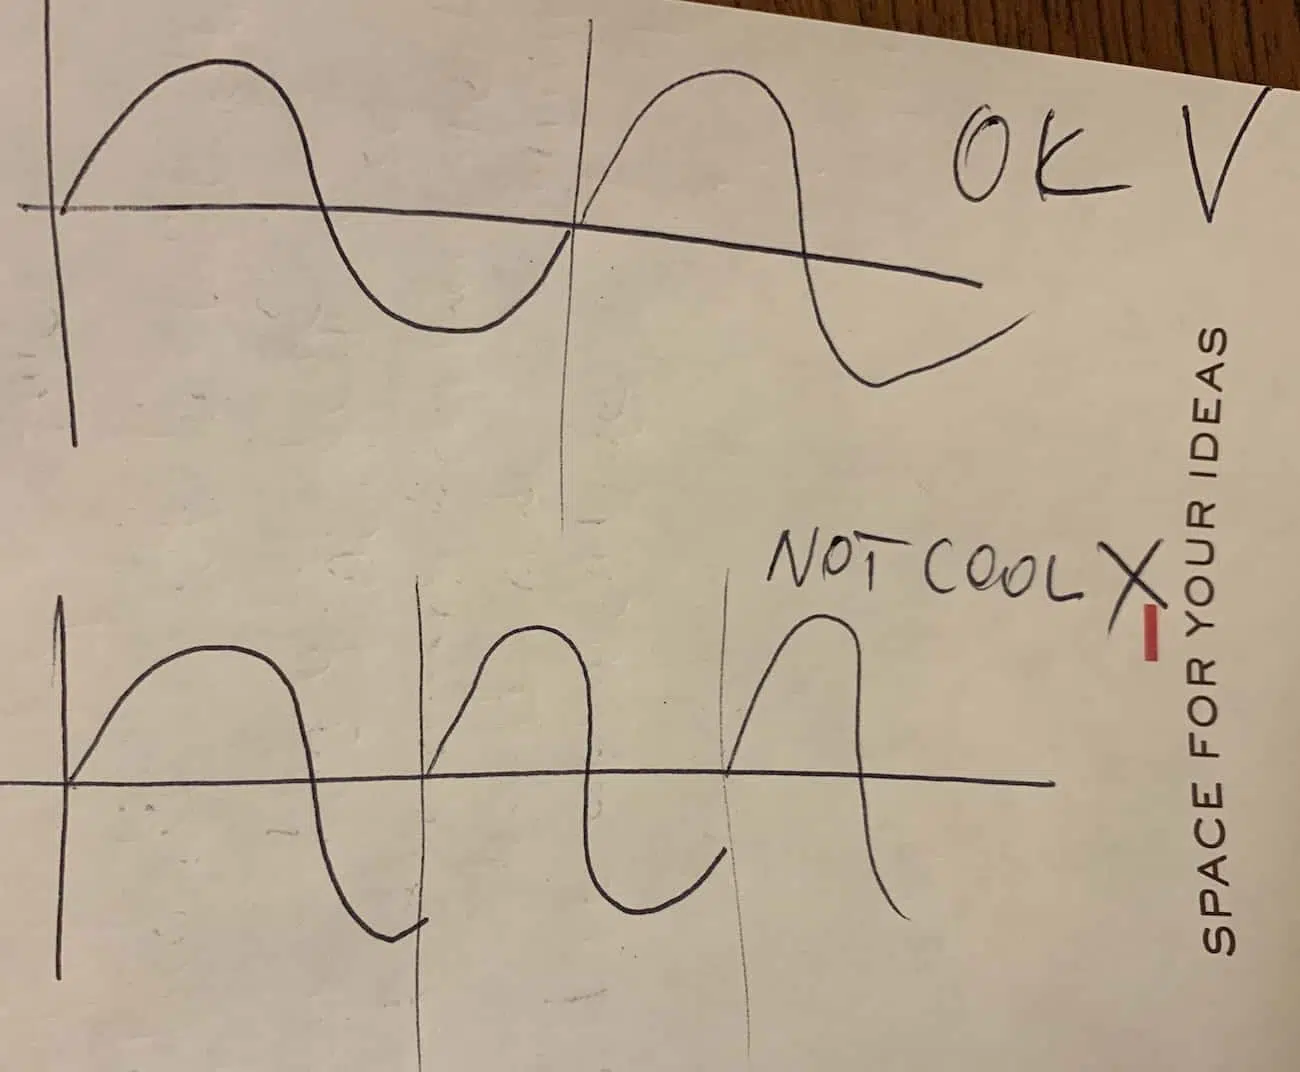 OK V
NOT COOL X
SPACE FOR YOUR IDEAS